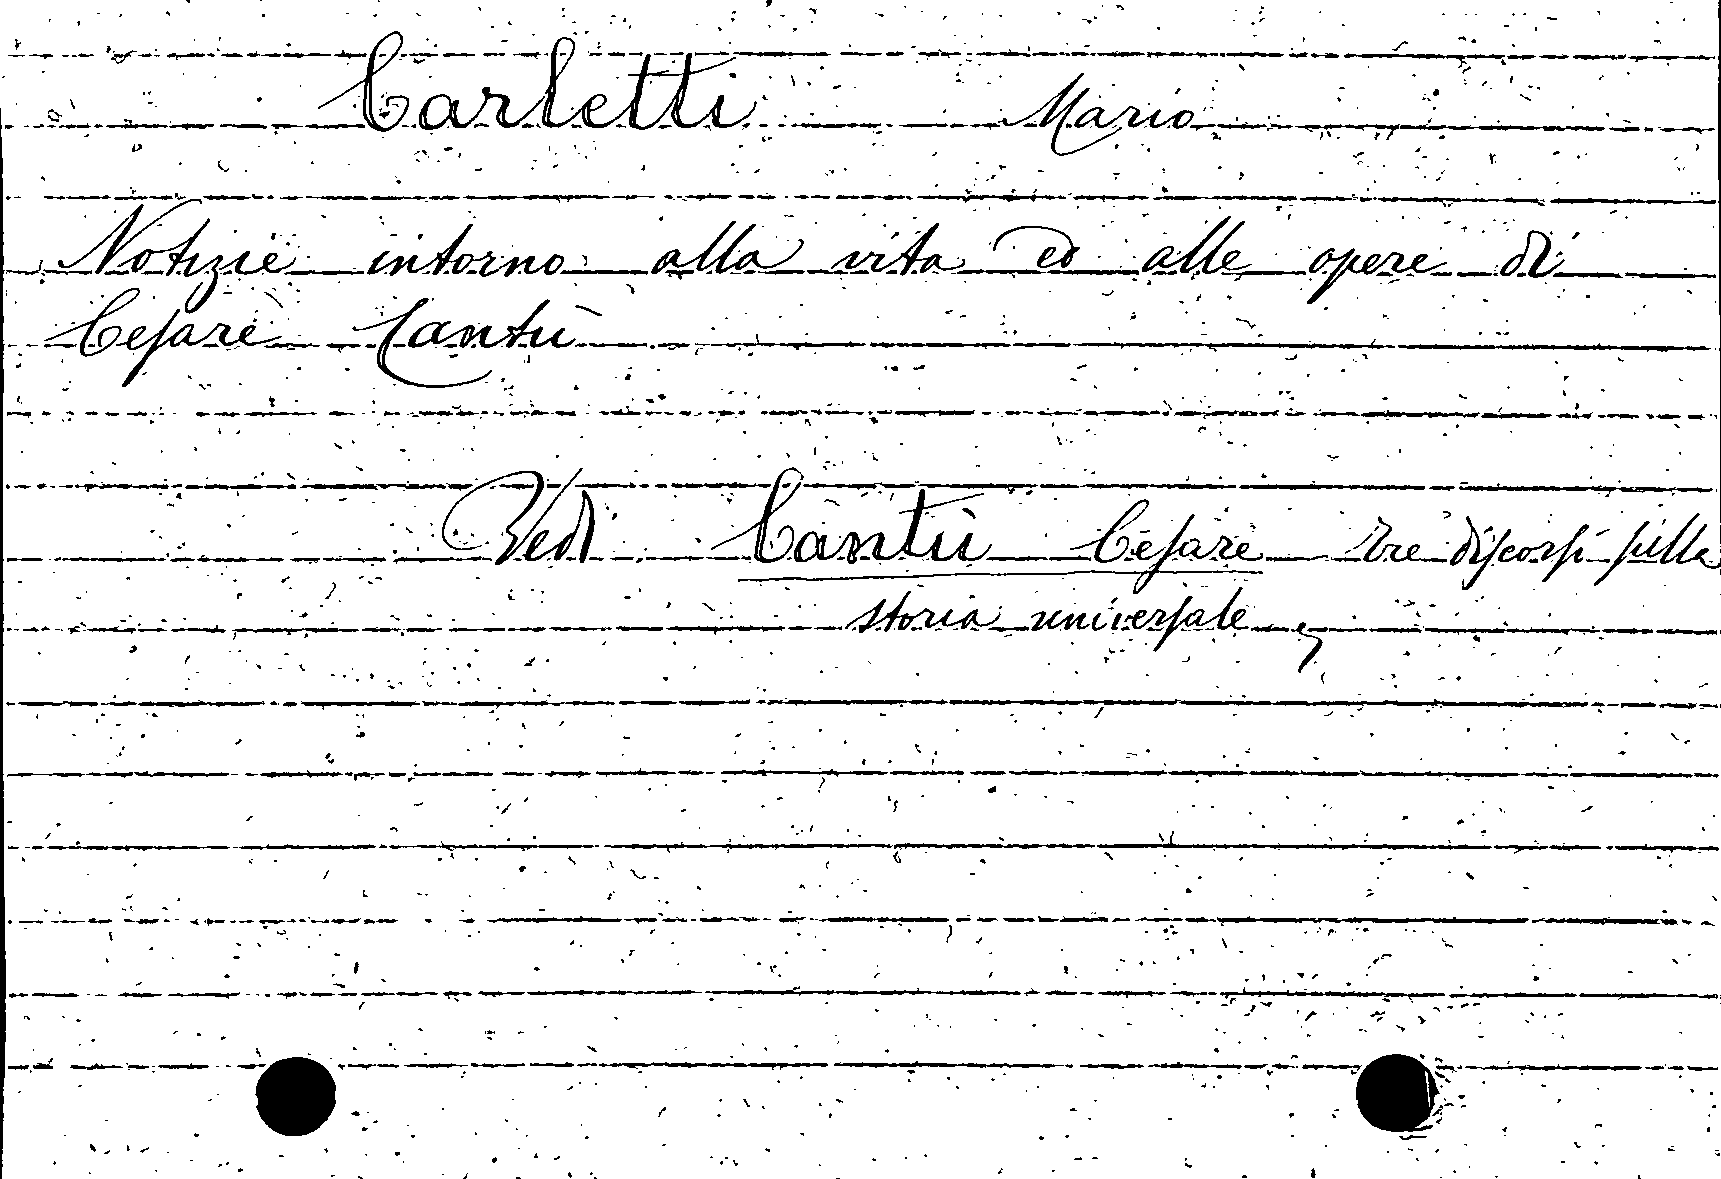 Carletti Mario
Notizie intorno alla vita ed alle opere di
Cesare Cantù
Vedi Cantù Cesare Tre discorsi sulla
storia universale